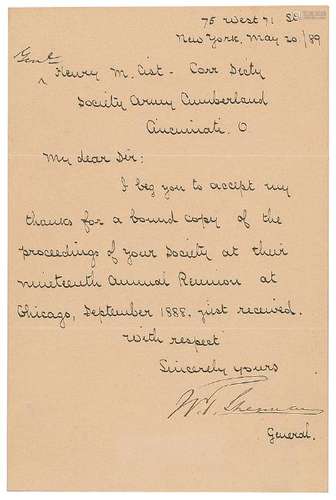 75 West 71 St
New York, May 20/89
Genl
Henry M. Cist - Corr Secty
Society Army Cumberland
Cincinnati. O
My dear Sir:
I beg you to accept my
thanks for a bound copy of the
proceedings of your Society at their
nineteenth Annual Reunion at
Chicago, September 1888. just received.
With respect
Sincerely yours
W. T. Sherman
General.